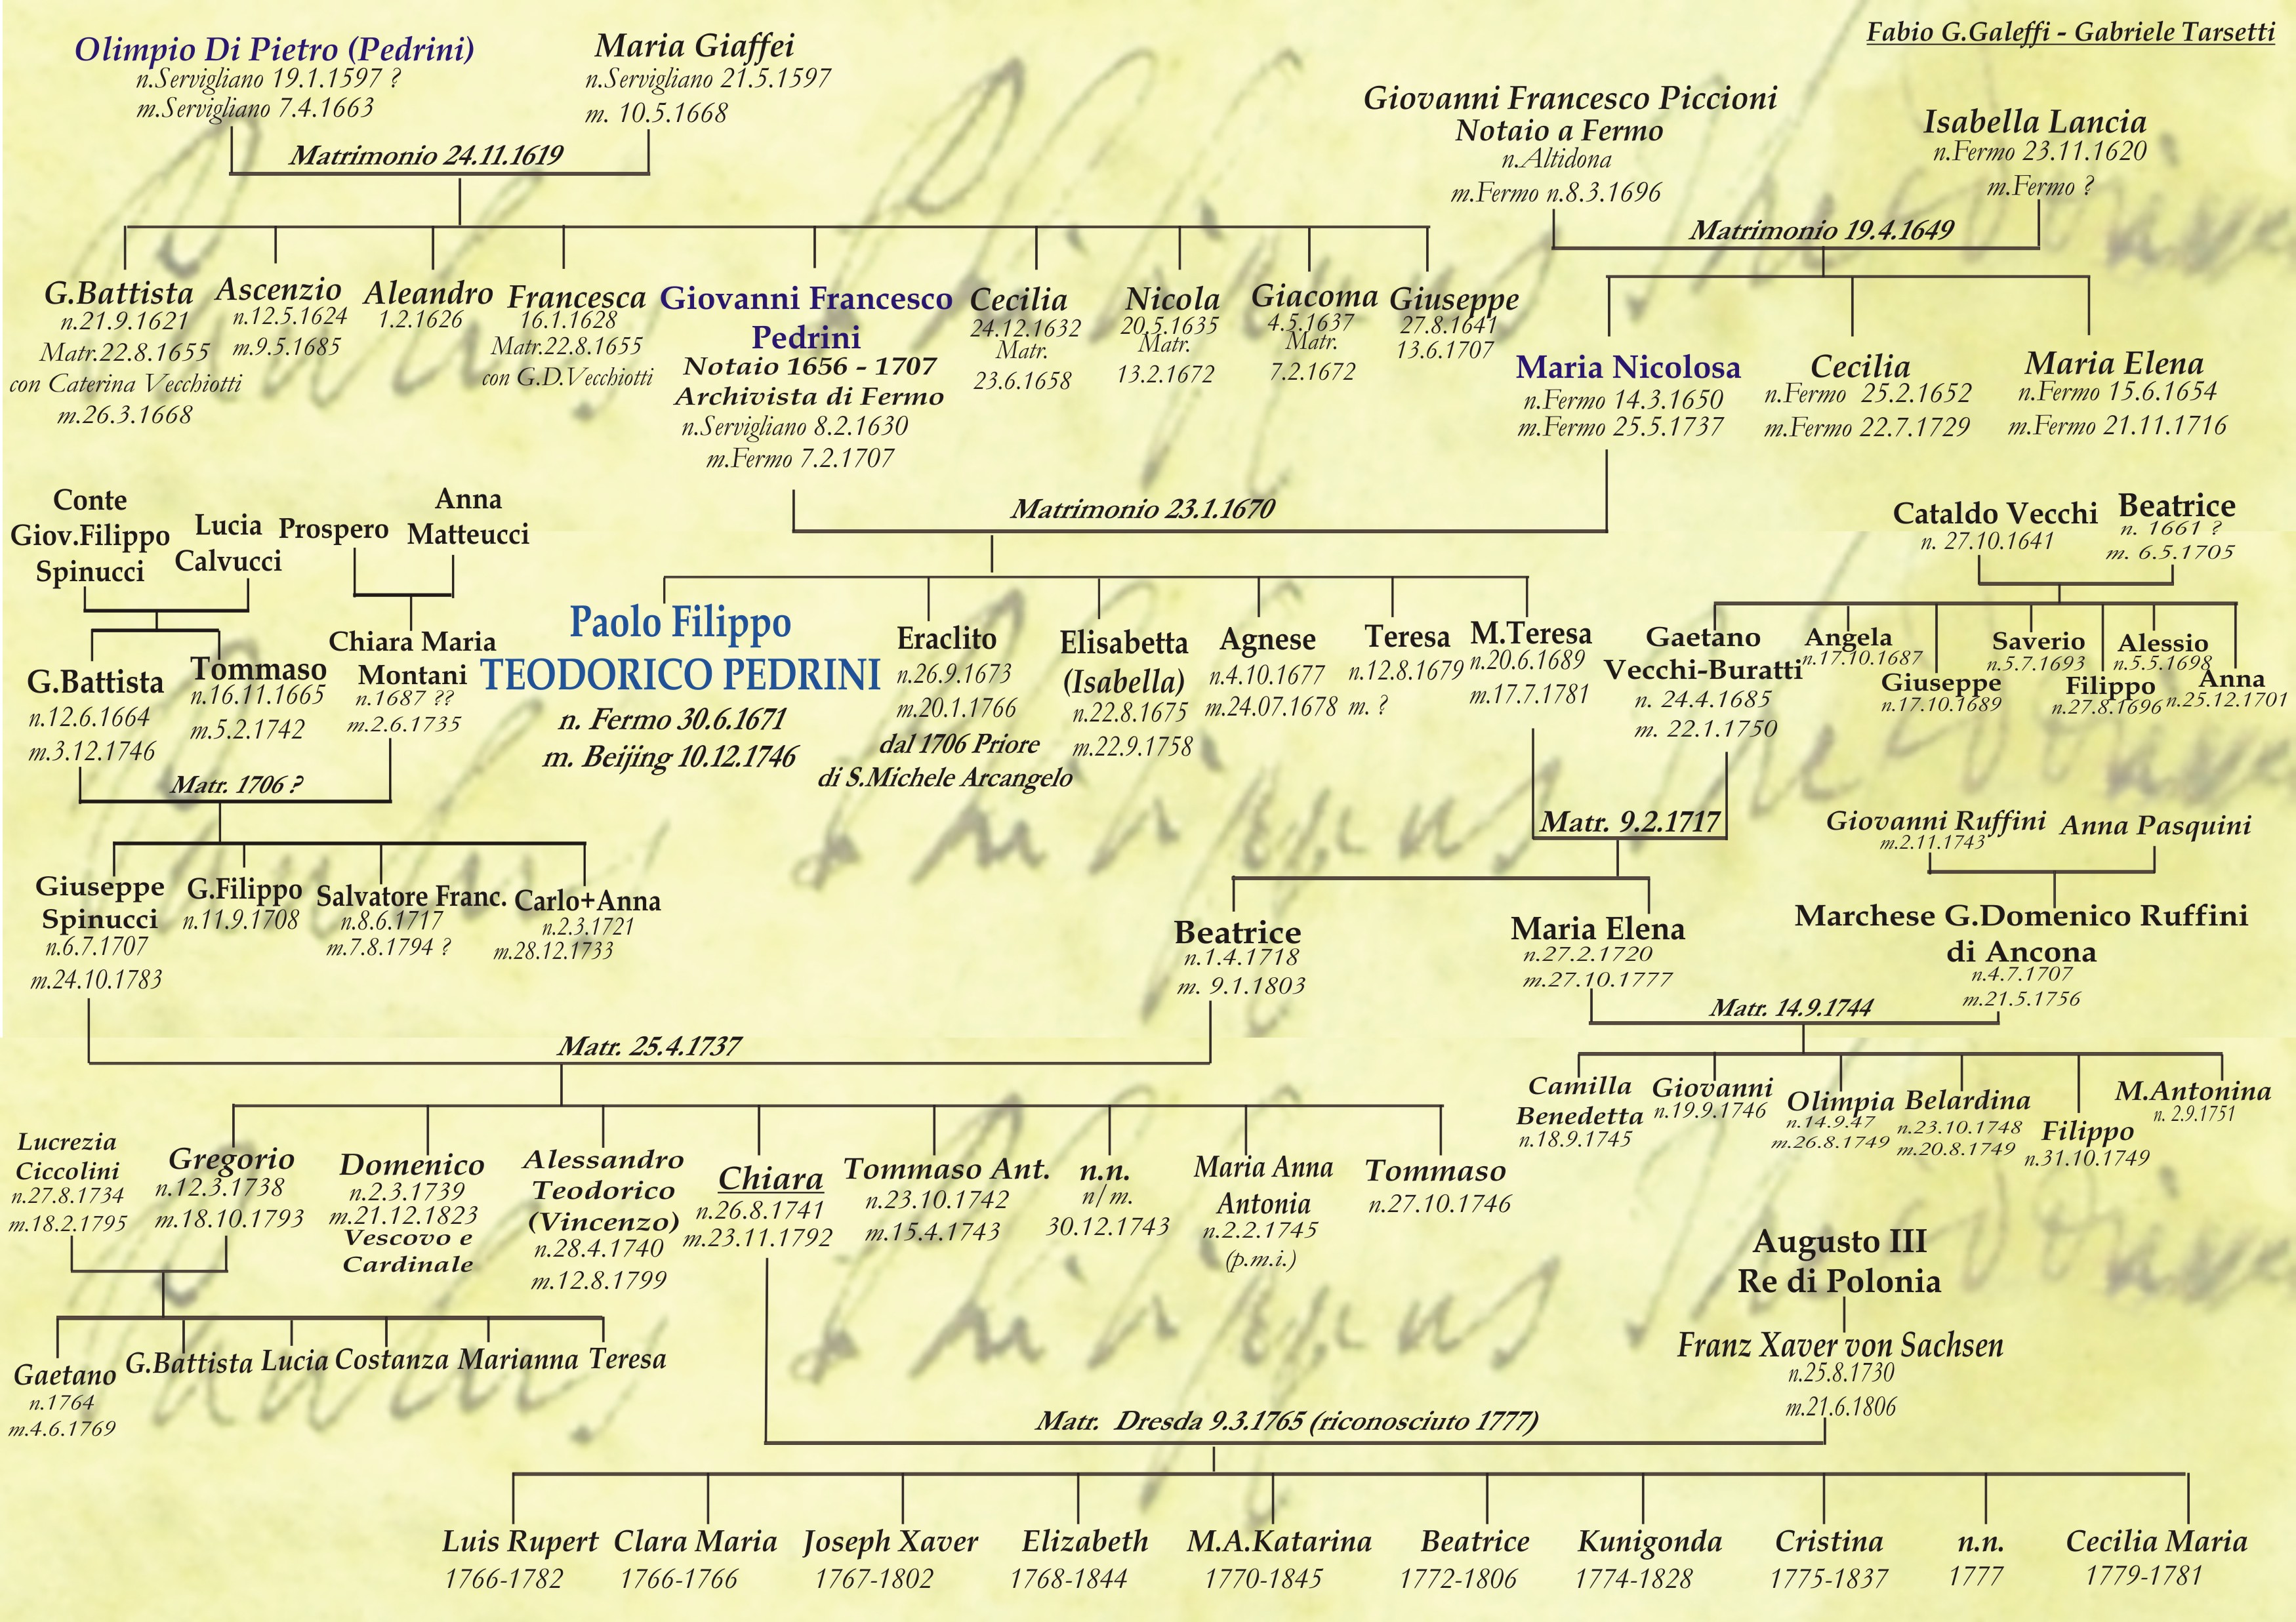 Fabio G.Galeffi - Gabriele Tarsetti
Olimpio Di Pietro (Pedrini)
n.Servigliano 19.1.1597 ?
m.Servigliano 7.4.1663
Maria Giaffei
n.Servigliano 21.5.1597
m. 10.5.1668
Matrimonio 24.11.1619
Giovanni Francesco Piccioni
Notaio a Fermo
n.Altidona
m.Fermo n.8.3.1696
Isabella Lancia
n.Fermo 23.11.1620
m.Fermo ?
Matrimonio 19.4.1649
G.Battista
n.21.9.1621
Matr.22.8.1655
con Caterina Vecchiotti
m.26.3.1668
Ascenzio
n.12.5.1624
m.9.5.1685
Aleandro
1.2.1626
Francesca
16.1.1628
Matr.22.8.1655
con G.D.Vecchiotti
Giovanni Francesco
Pedrini
Notaio 1656 - 1707
Archivista di Fermo
n.Servigliano 8.2.1630
m.Fermo 7.2.1707
Cecilia
24.12.1632
Matr.
23.6.1658
Nicola
20.5.1635
Matr.
13.2.1672
Giacoma
4.5.1637
Matr.
7.2.1672
Giuseppe
27.8.1641
13.6.1707
Maria Nicolosa
n.Fermo 14.3.1650
m.Fermo 25.5.1737
Cecilia
n.Fermo 25.2.1652
m.Fermo 22.7.1729
Maria Elena
n.Fermo 15.6.1654
m.Fermo 21.11.1716
Matrimonio 23.1.1670
Conte
Giov.Filippo
Spinucci
Lucia
Calvucci
Prospero
Anna
Matteucci
Cataldo Vecchi
n. 27.10.1641
Beatrice
n. 1661 ?
m. 6.5.1705
G.Battista
n.12.6.1664
m.3.12.1746
Tommaso
n.16.11.1665
m.5.2.1742
Chiara Maria
Montani
n.1687 ??
m.2.6.1735
Paolo Filippo
TEODORICO PEDRINI
n. Fermo 30.6.1671
m. Beijing 10.12.1746
Eraclito
n.26.9.1673
m.20.1.1766
dal 1706 Priore
di S.Michele Arcangelo
Elisabetta
(Isabella)
n.22.8.1675
m.22.9.1758
Agnese
n.4.10.1677
m.24.07.1678
Teresa
n.12.8.1679
m. ?
M.Teresa
n.20.6.1689
m.17.7.1781
Gaetano
Vecchi-Buratti
n. 24.4.1685
m. 22.1.1750
Angela
n.17.10.1687
Giuseppe
n.17.10.1689
Saverio
n.5.7.1693
Filippo
n.27.8.1696
Alessio
n.5.5.1698
Anna
n.25.12.1701
Matr. 1706 ?
Matr. 9.2.1717
Giovanni Ruffini
m.2.11.1743
Anna Pasquini
Giuseppe
Spinucci
n.6.7.1707
m.24.10.1783
G.Filippo
n.11.9.1708
Salvatore Franc.
n.8.6.1717
m.7.8.1794 ?
Carlo+Anna
n.2.3.1721
m.28.12.1733
Beatrice
n.1.4.1718
m. 9.1.1803
Maria Elena
n.27.2.1720
m.27.10.1777
Marchese G.Domenico Ruffini
di Ancona
n.4.7.1707
m.21.5.1756
Matr. 14.9.1744
Matr. 25.4.1737
Camilla
Benedetta
n.18.9.1745
Giovanni
n.19.9.1746
Olimpia
n.14.9.47
m.26.8.1749
Belardina
n.23.10.1748
m.20.8.1749
Filippo
n.31.10.1749
M.Antonina
n. 2.9.1751
Lucrezia
Ciccolini
n.27.8.1734
m.18.2.1795
Gregorio
n.12.3.1738
m.18.10.1793
Domenico
n.2.3.1739
m.21.12.1823
Vescovo e
Cardinale
Alessandro
Teodorico
(Vincenzo)
n.28.4.1740
m.12.8.1799
Chiara
n.26.8.1741
m.23.11.1792
Tommaso Ant.
n.23.10.1742
m.15.4.1743
n.n.
n/m.
30.12.1743
Maria Anna
Antonia
n.2.2.1745
(p.m.i.)
Tommaso
n.27.10.1746
Augusto III
Re di Polonia
Franz Xaver von Sachsen
n.25.8.1730
m.21.6.1806
Gaetano
n.1764
m.4.6.1769
G.Battista
Lucia
Costanza
Marianna
Teresa
Matr. Dresda 9.3.1765 (riconosciuto 1777)
Luis Rupert
1766-1782
Clara Maria
1766-1766
Joseph Xaver
1767-1802
Elizabeth
1768-1844
M.A.Katarina
1770-1845
Beatrice
1772-1806
Kunigonda
1774-1828
Cristina
1775-1837
n.n.
1777
Cecilia Maria
1779-1781